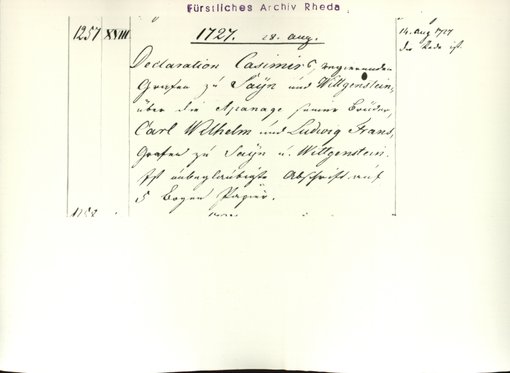 Fürstliches Archiv Rheda
1257 XVIII 1727. 28. Aug. 14. Aug 1727
Declaration Casimirs, regierenden
Grafen zu Sayn und Wittgenstein,
über die Apanage seiner Brüder,
Carl Wilhelm und Ludwig Franz,
Grafen zu Sayn u. Wittgenstein.
Ist unbeglaubigte Abschrift auf
5 Bogen Papier.
1258